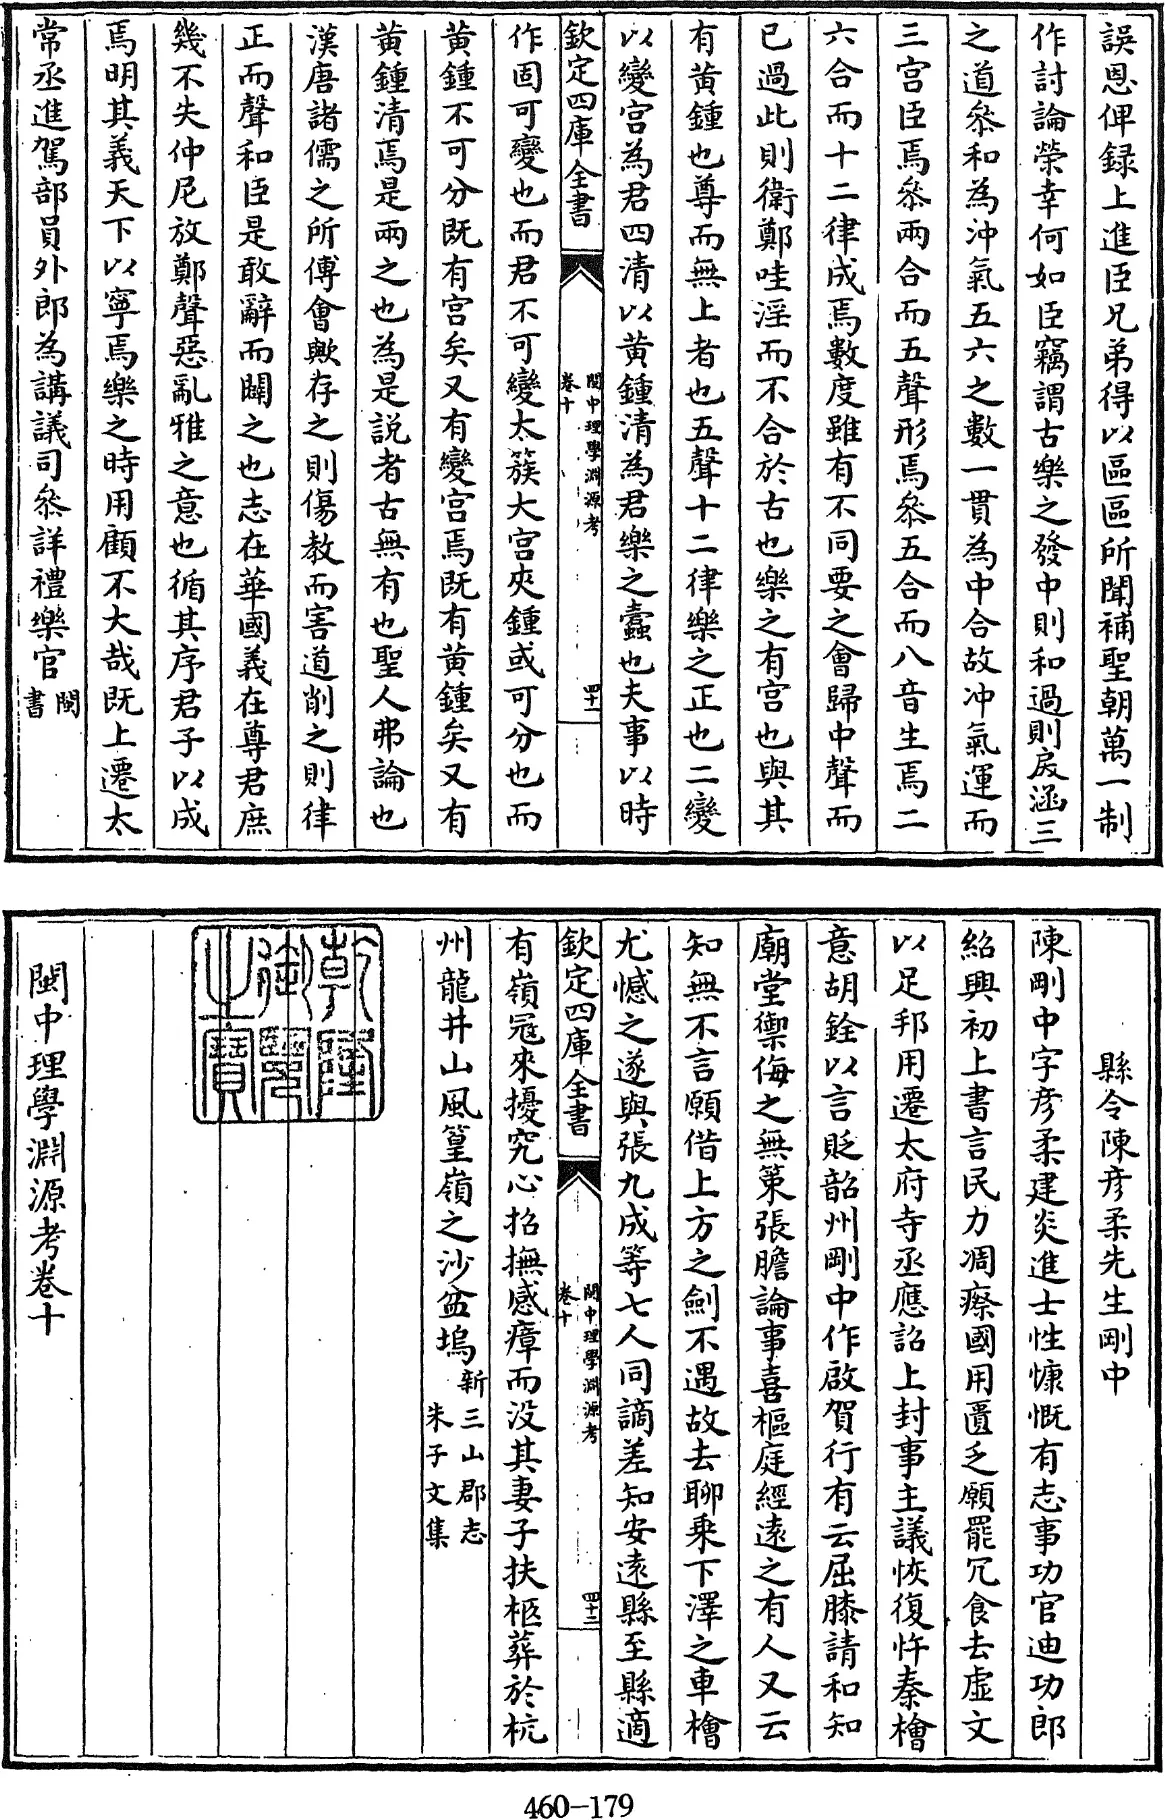 誤恩俾録上進臣兄弟得以區區所聞補聖朝萬一制
作討論榮幸何如臣竊謂古樂之發中則和過則戾涵三
之道叅和為沖氣五六之數一貫為中合故冲氣運而
三宫臣焉叅兩合而五聲形焉叅五合而八音生焉二
六合而十二律成焉數度雖有不同要之會歸中聲而
已過此則衛鄭哇淫而不合於古也樂之有宫也與其
有黄鍾也尊而無上者也五聲十二律樂之正也二變
以變宫為君四清以黄鍾清為君樂之蠧也夫事以時
欽定四庫全書
閩中理學淵源考
卷十
四十一
作固可變也而君不可變太簇大宫夾鍾或可分也而
黄鍾不可分既有宫矣又有變宫焉既有黄鍾矣又有
黄鍾清焉是兩之也為是説者古無有也聖人弗論也
漢唐諸儒之所傅會歟存之則傷教而害道削之則律
正而聲和臣是敢辭而闢之也志在華國義在尊君庶
幾不失仲尼放鄭聲惡亂雅之意也循其序君子以成
焉明其義天下以寧焉樂之時用顧不大哉既上遷太
常丞進駕部員外郎為講議司叅詳禮樂官 閩
書
縣令陳彦柔先生剛中
陳剛中字彦柔建炎進士性慷慨有志事功官迪功郎
紹興初上書言民力凋瘵國用匱乏願罷冗食去虚文
以足邦用遷太府寺丞應詔上封事主議恢復忤秦檜
意胡銓以言貶韶州剛中作啟賀行有云屈膝請和知
廟堂禦侮之無策張膽論事喜樞庭經遠之有人又云
知無不言願借上方之劍不遇故去聊乘下澤之車檜
尤憾之遂與張九成等七人同謫差知安遠縣至縣適
欽定四庫全書
閩中理學淵源考
卷十
四十二
有嶺冦來擾究心招撫感瘴而没其妻子扶柩葬於杭
州龍井山風篁嶺之沙盆塢 新三山郡志
朱子文集
乾隆
御覽
之寶
閩中理學淵源考卷十
460-179